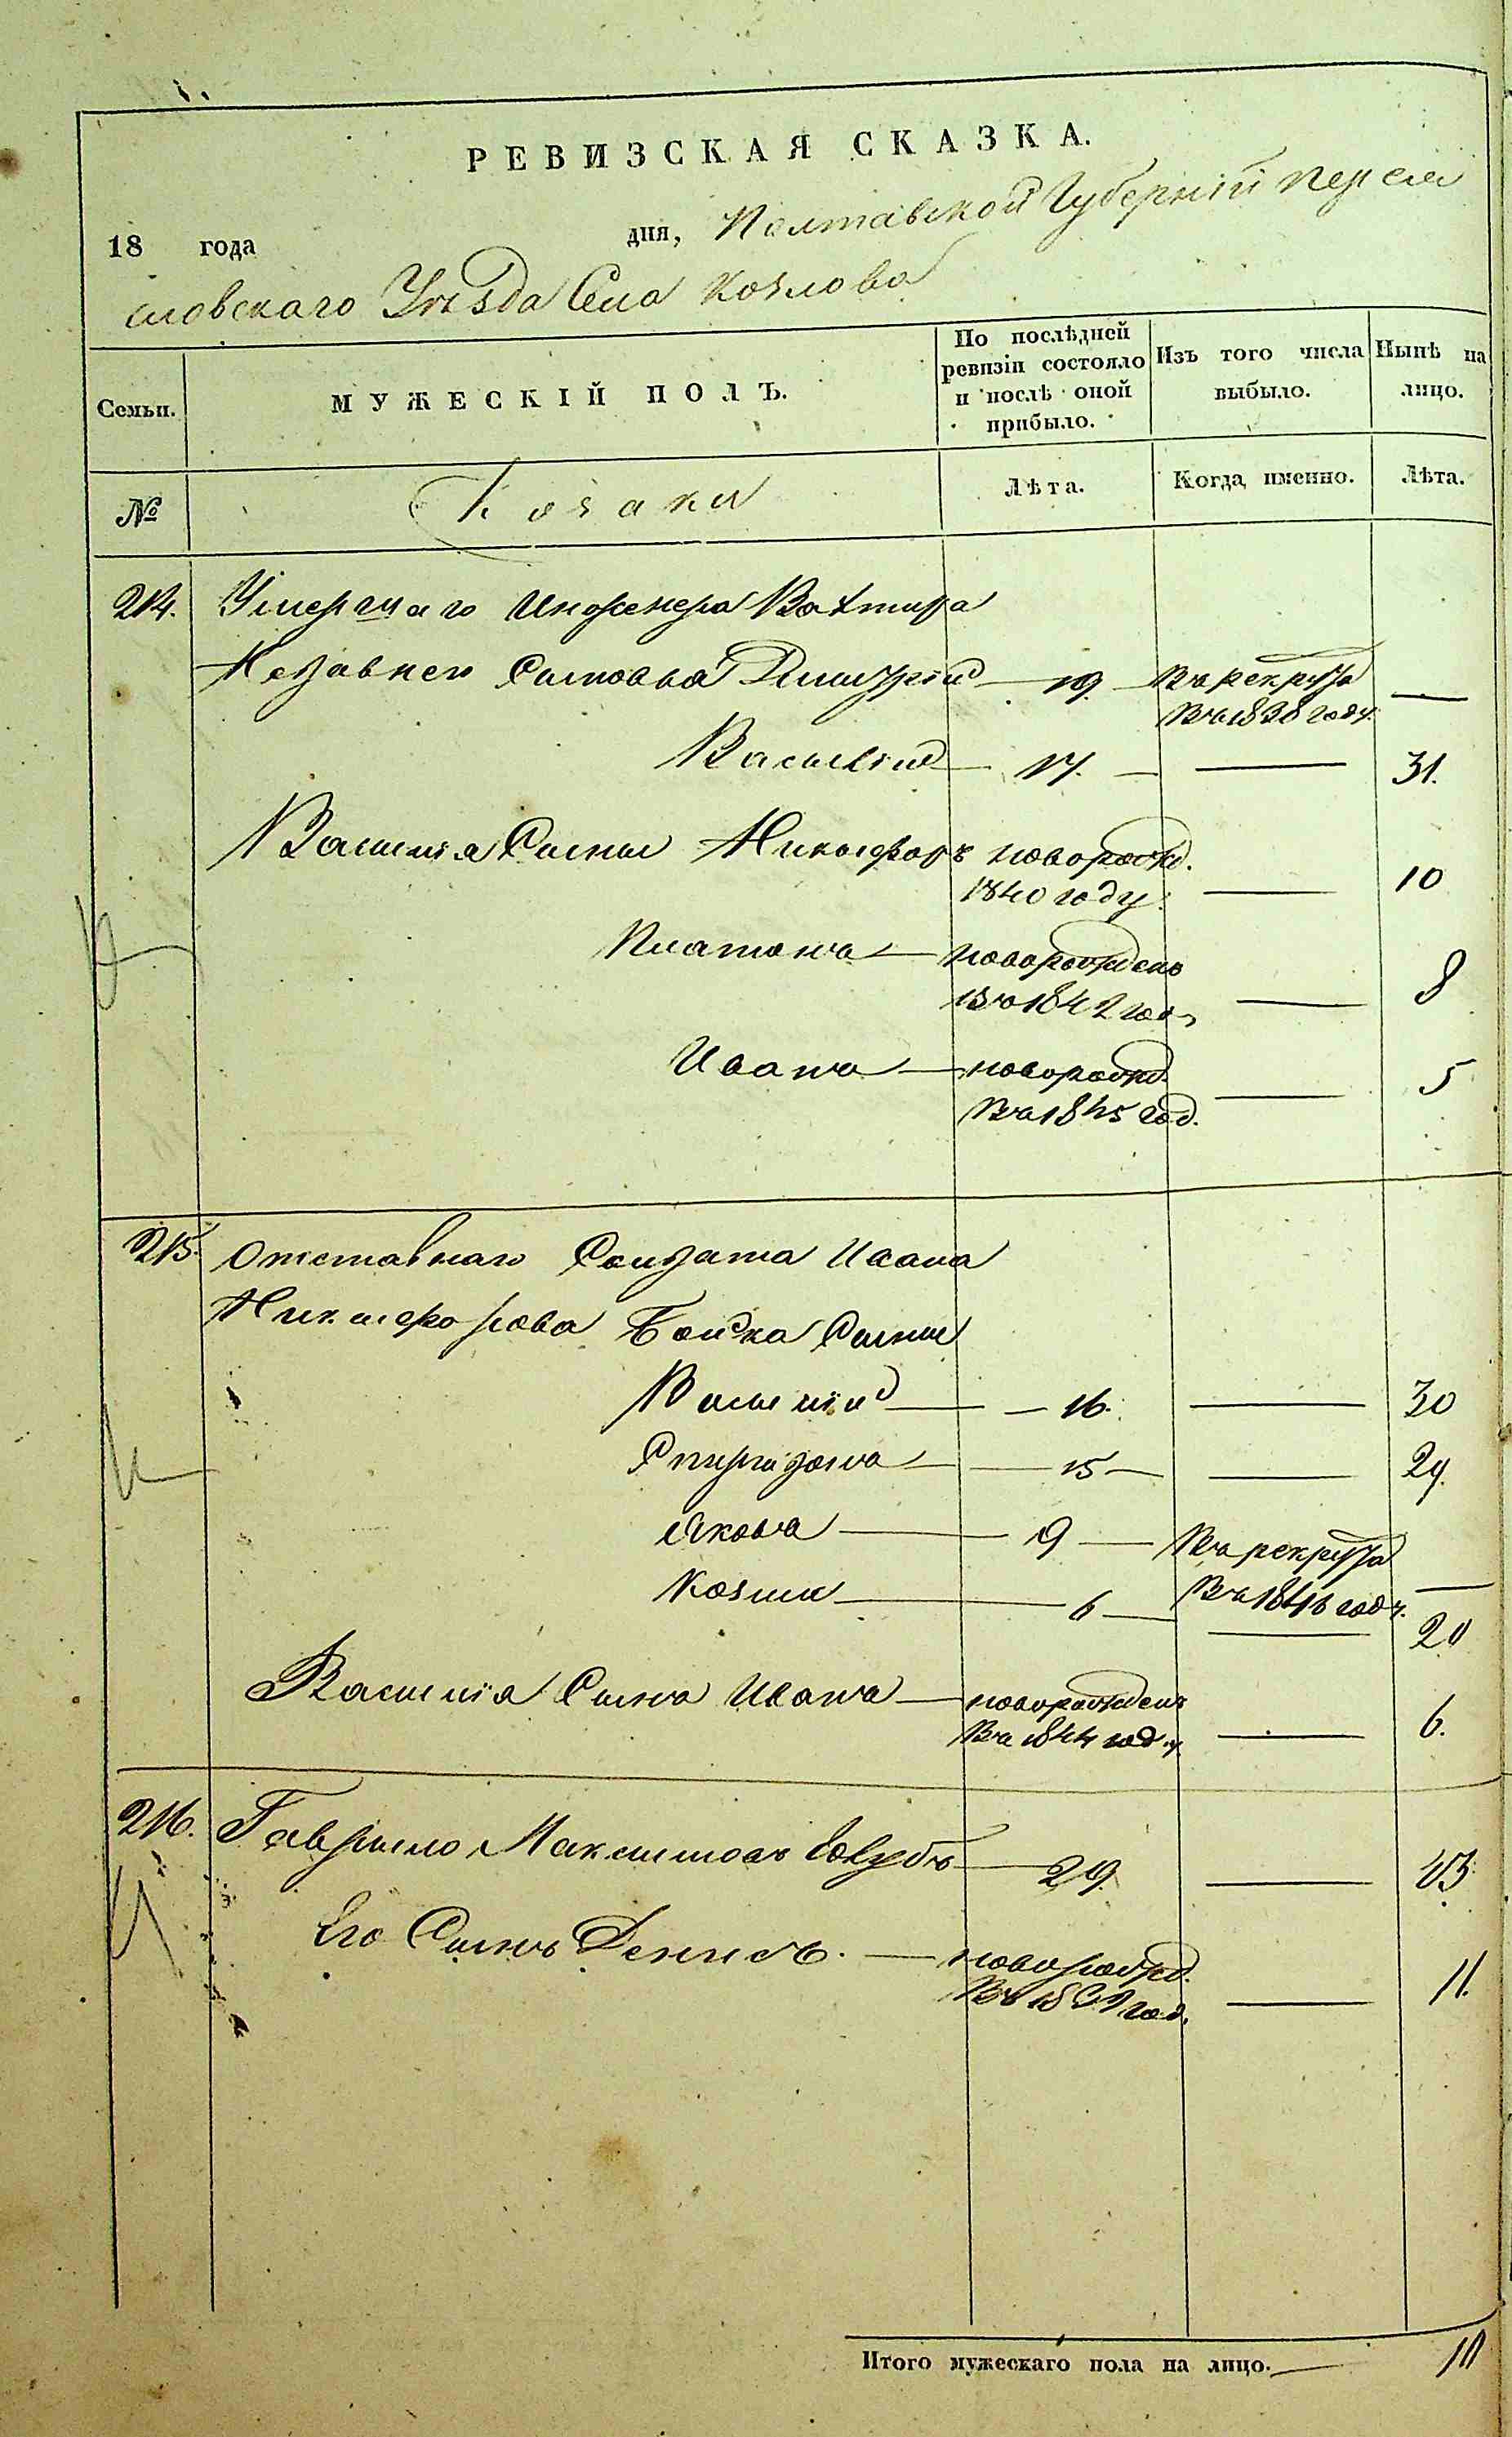 РЕВИЗСКАЯ СКАЗКА.
18 года дня, Полтавской Губерніи Переяс
ловскаго Уѣзда Села Козлова
Семьи.
МУЖЕСКІЙ ПОЛЪ.
По послѣдней ревизіи состояло и послѣ оной прибыло.
Изъ того числа выбыло.
Нынѣ на лицо.
№
Козаки
Лѣта.
Когда именно.
Лѣта.
214. Умершаго Инженера
Сыновья Дмитрій 19. Въ рекруты —
Въ 1838 году.
Василій — 17. — — 31.
Василія Сыны Никифоръ новорожд. — 10
1840 году.
Платонъ — новорожденъ — 8
Въ 1842 году
Иванъ — новорожд. — 5
Въ 1845 год.
215. Отставнаго Солдата Ивана
Никифорова Бойка Сыны
Василій — 16. — 30
Спиридонъ — 15 — — 29.
Яковъ — 9 — Въ рекруты
Въ 1846 году. —
Козма — 6 — — 20
Василія Сынъ Иванъ — новорожденъ — 6.
Въ 1844 году
216. Гаврило Максимовъ — 29. — 43.
Его Сынъ Денисъ. — новорожд. — 11.
Въ 1839 год.
Итого мужескаго пола на лицо. — 10